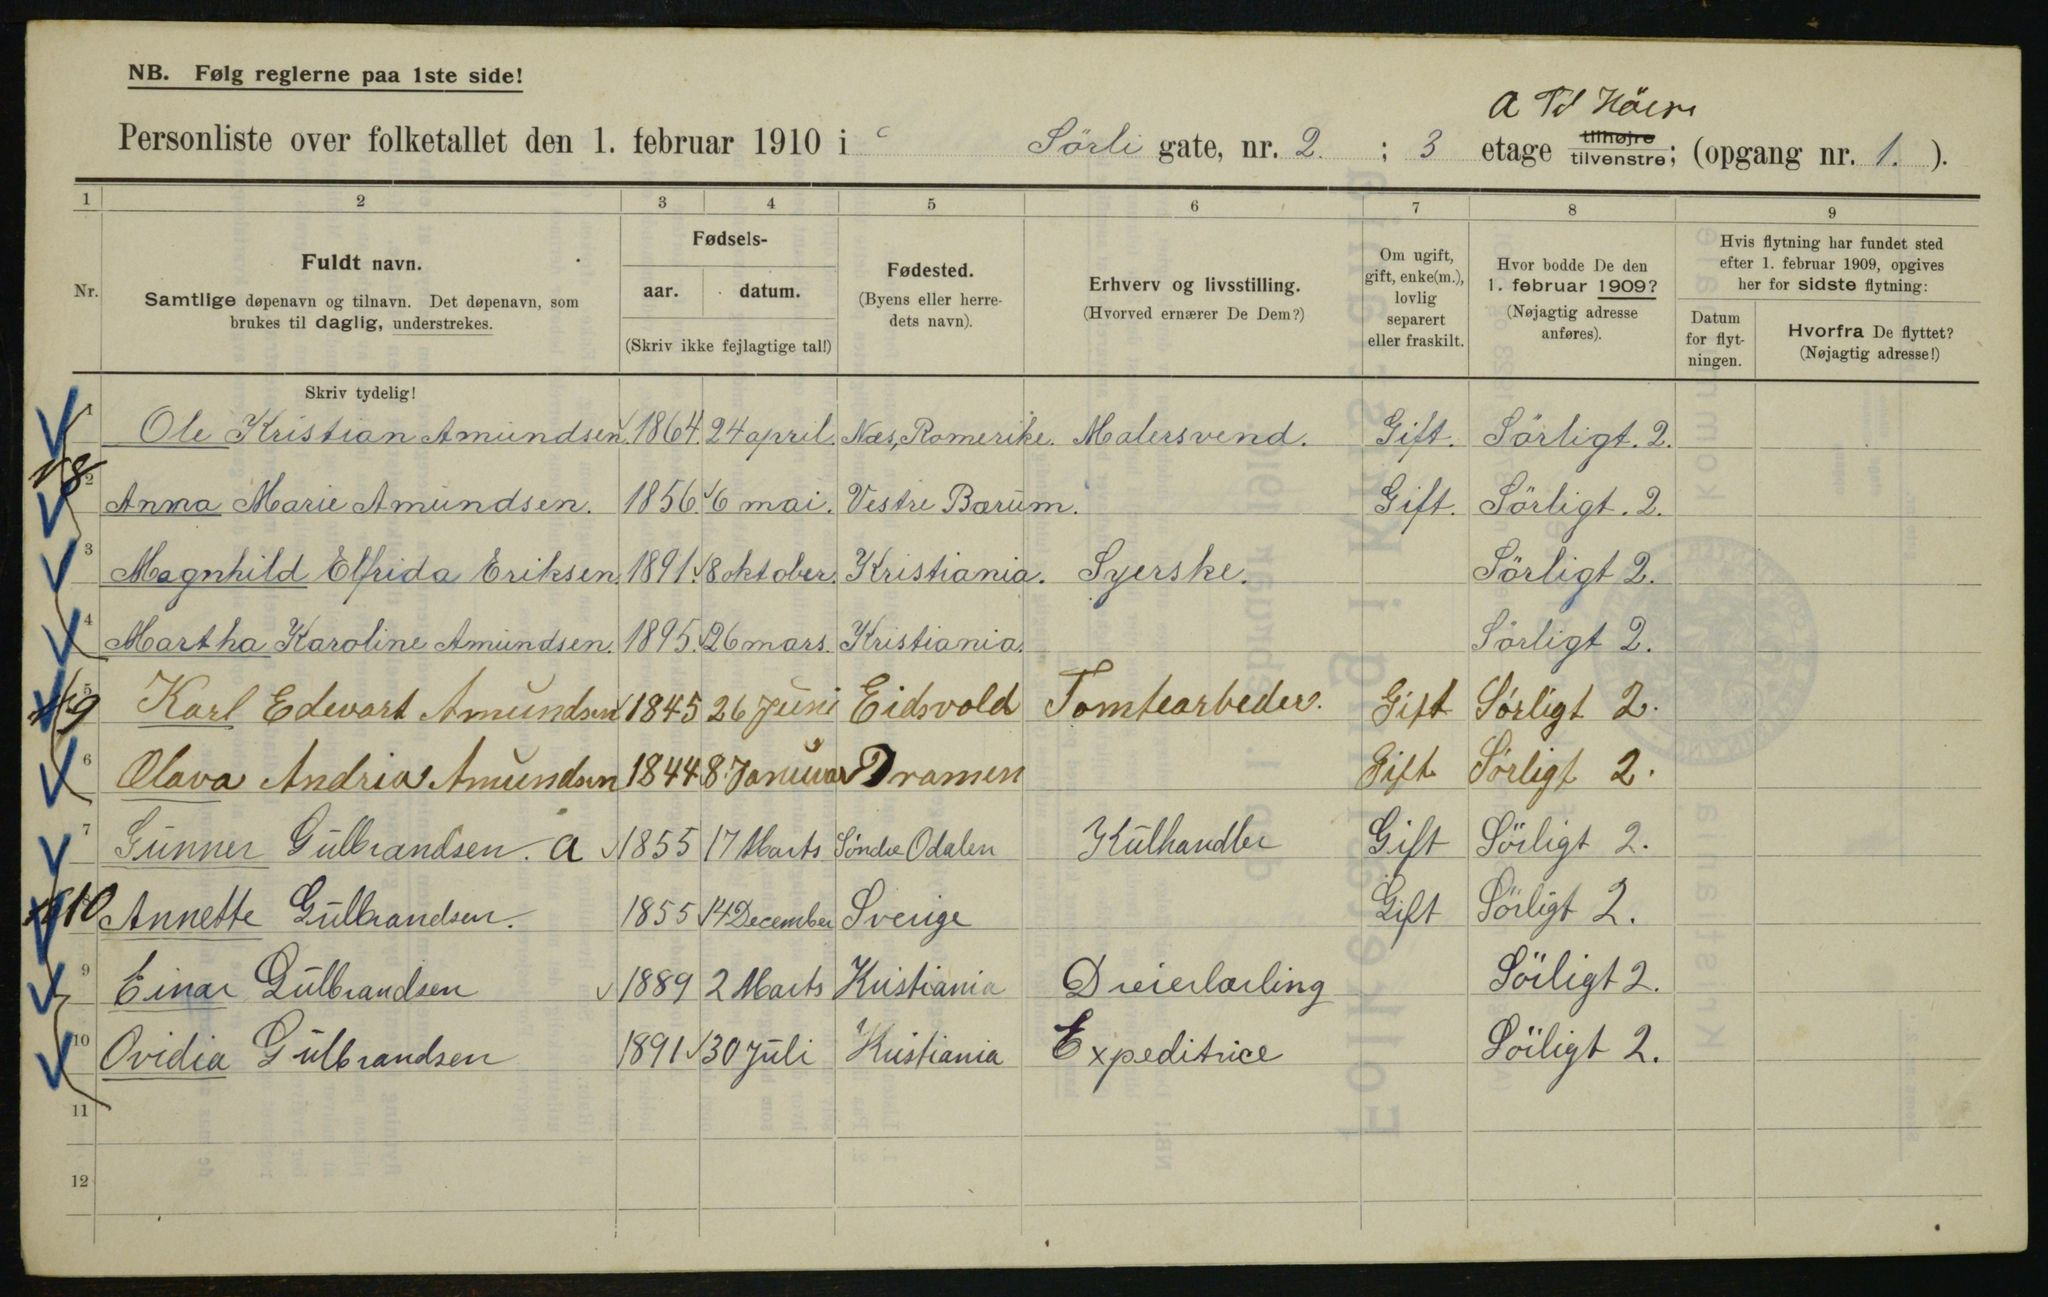 NB. Følg reglerne paa 1ste side!
a Til Höire
Personliste over folketallet den 1. februar 1910 i Sörli gate, nr. 2. ; 3 etage tilhøjre tilvenstre; (opgang nr. 1. ).
1 2 3 4 5 6 7 8 9
Nr.
Fuldt navn.
Samtlige døpenavn og tilnavn. Det døpenavn, som
brukes til daglig, understrekes.
Fødsels-
aar. datum.
(Skriv ikke fejlagtige tal!)
Fødested.
(Byens eller herre-
dets navn).
Erhverv og livsstilling.
(Hvorved ernærer De Dem?)
Om ugift,
gift, enke(m.),
lovlig
separert
eller fraskilt.
Hvor bodde De den
1. februar 1909?
(Nøjagtig adresse
anføres).
Hvis flytning har fundet sted
efter 1. februar 1909, opgives
her for sidste flytning:
Datum
for flyt-
ningen.
Hvorfra De flyttet?
(Nøjagtig adresse!)
Skriv tydelig!
1 Ole Kristian Amundsen. 1864. 24 april. Næs, Romerike. Malersvend. Gift. Sörligt. 2.
2 Anna Marie Amundsen. 1856. 6 mai. Vestre Bærum. Gift. Sörligt. 2.
3 Magnhild Elfrida Eriksen. 1891. 8 oktober. Kristiania. Syerske. Sörligt 2.
4 Martha Karoline Amundsen. 1895. 26 mars. Kristiania. Sörligt 2.
5 Karl Edevart Amundsen 1845 26 Juni Eidsvold Tomtearbeder. Gift Sörligt 2.
6 Olava Andria Amundsen 1844 8. Januar Dramen Gift Sörligt 2.
7 Gunner Gulbrandsen. a 1855 17 Marts Söndre Odalen Kulhandler Gift Sörligt 2.
Annette Gulbrandsen. 1855 14 December Sverige Gift Sörligt 2.
9 Einar Gulbrandsen 1889 2 Marts Kristiania Dreierlærling Sörligt 2.
10 Ovidia Gulbrandsen 1891 30 Juli Kristiania Expeditrice Sörligt 2.
11
12